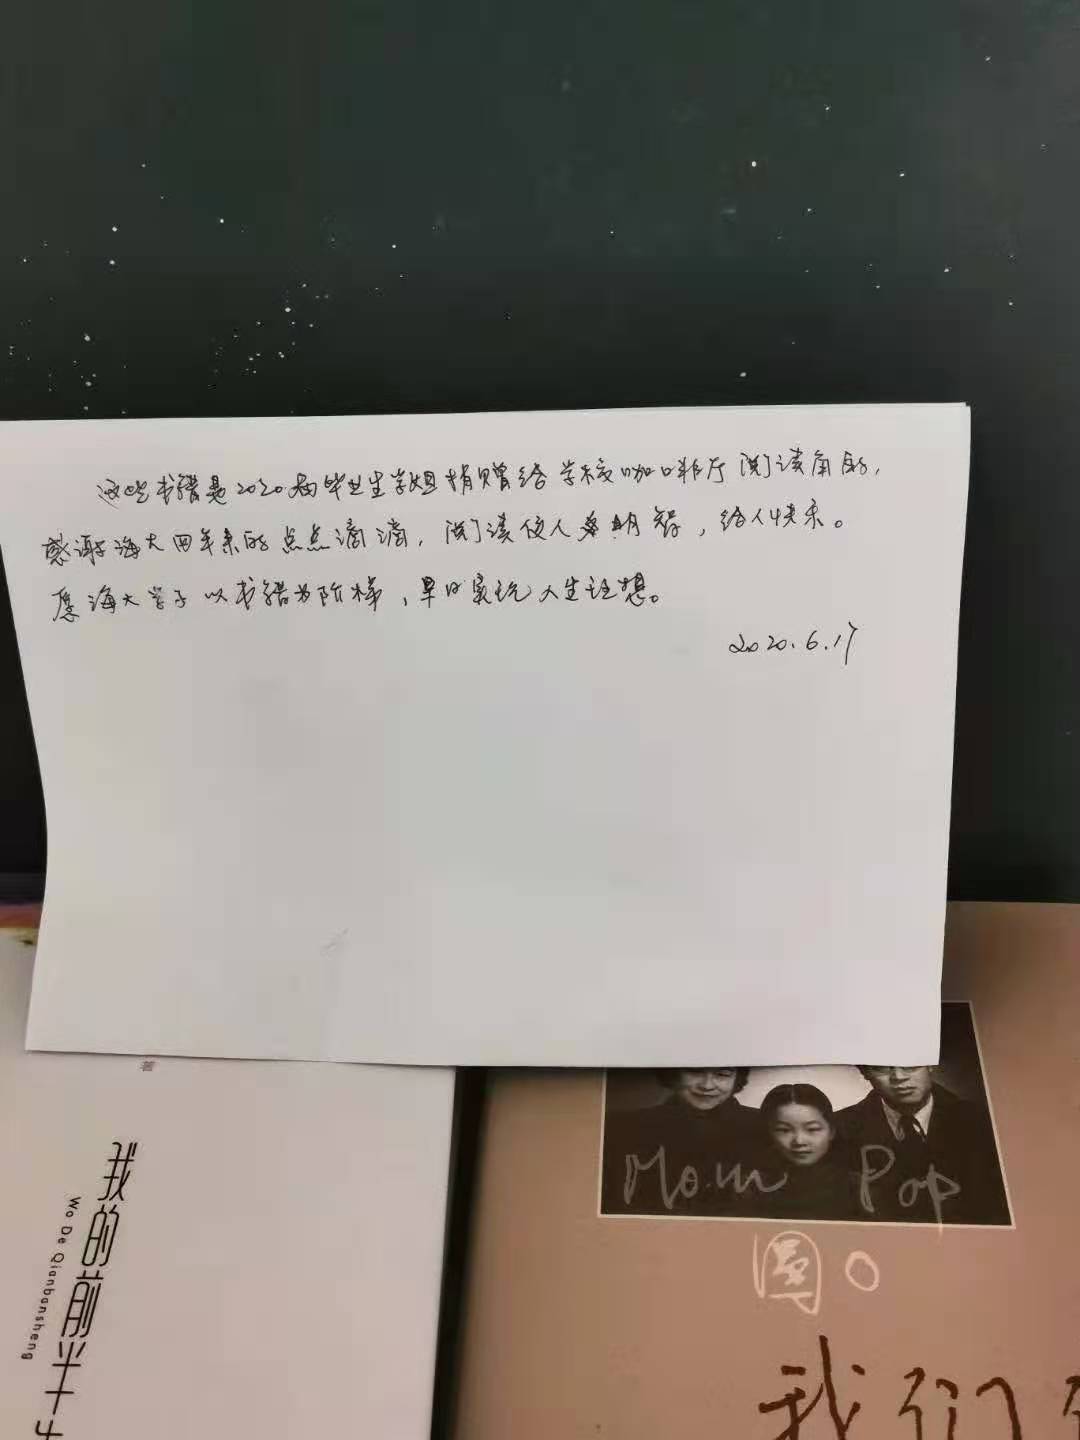 这些书籍是2020届毕业生学姐捐赠给学校咖啡厅阅读角的，
感谢海大四年来的点点滴滴，阅读使人明智，给人快乐。
愿海大学子以书籍为阶梯，早日实现人生理想。
2020.6.17
著
我的前半
Wo De Qianbansheng
Mom Pop
圆
我们